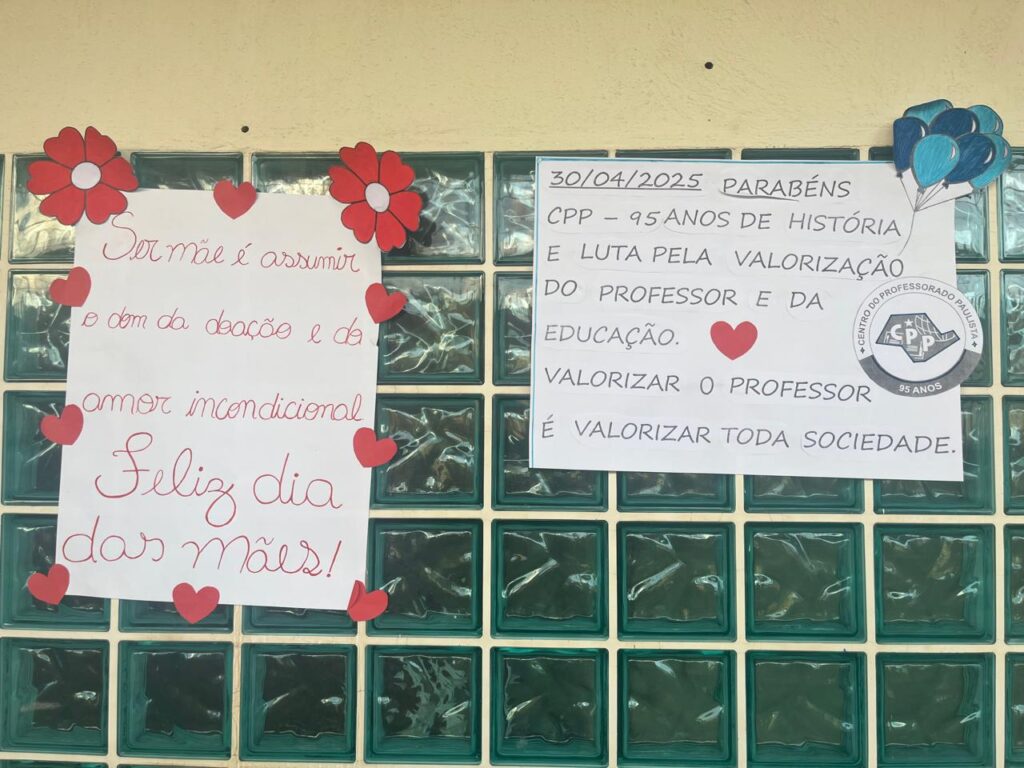 Ser mãe é assumir
o dom da doação e do
amor incondicional
Feliz dia
das Mães!
30/04/2025 PARABÉNS
CPP – 95 ANOS DE HISTÓRIA
E LUTA PELA VALORIZAÇÃO
DO PROFESSOR E DA
EDUCAÇÃO.
VALORIZAR O PROFESSOR
É VALORIZAR TODA SOCIEDADE.
CENTRO DO PROFESSORADO PAULISTA
CPP
95 ANOS